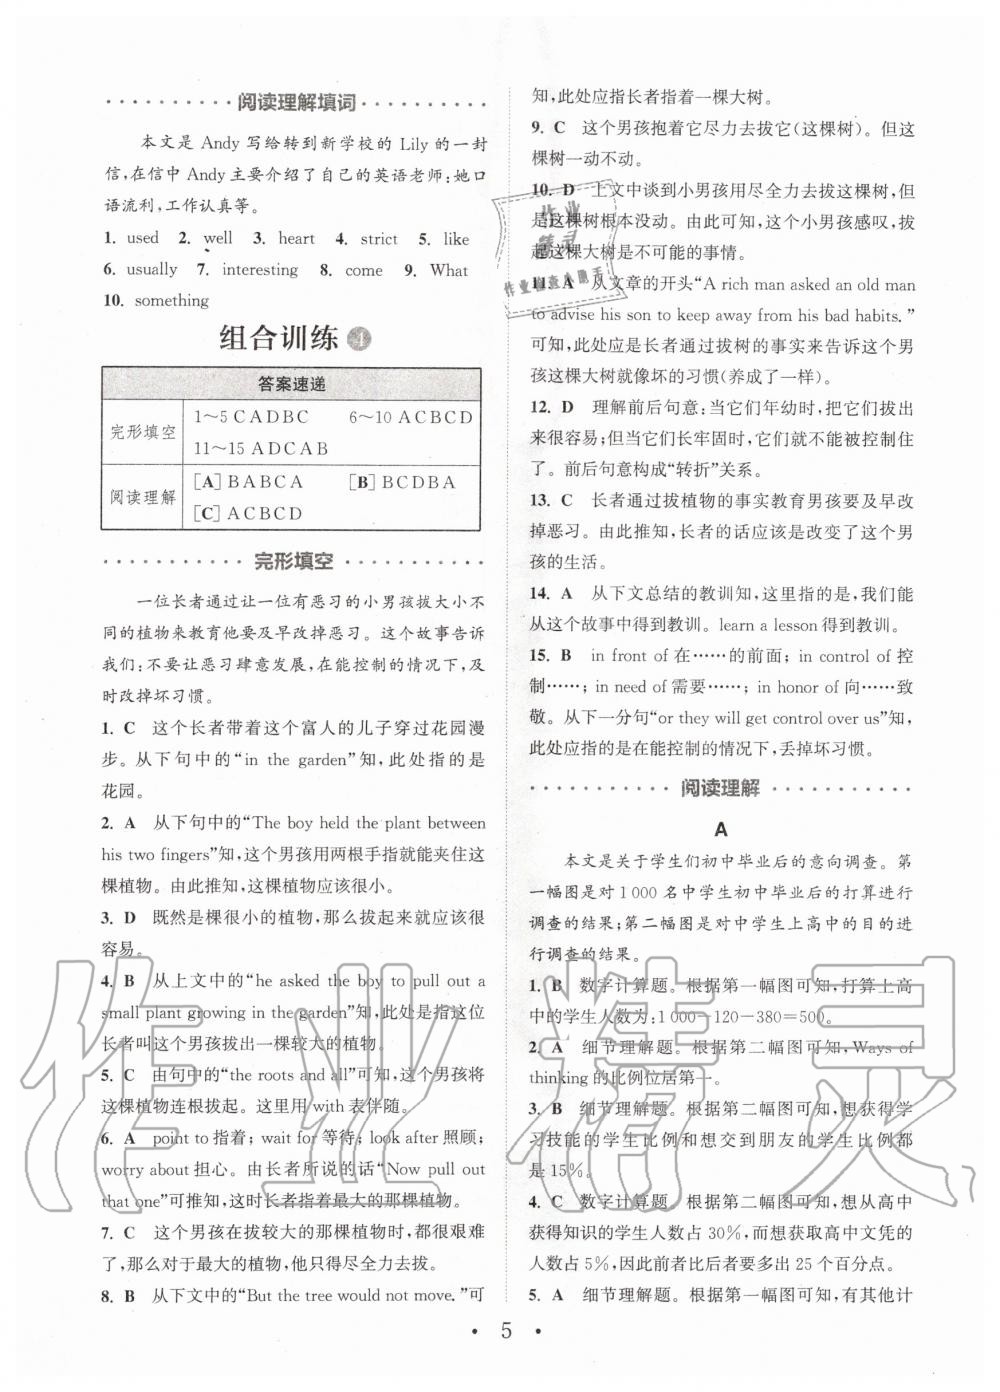 阅读理解填词
本文是 Andy 写给转到新学校的 Lily 的一封
信,在信中 Andy 主要介绍了自己的英语老师:她口
语流利,工作认真等。
1. used 2. well 3. heart 4. strict 5. like
6. usually 7. interesting 8. come 9. What
10. something
组合训练 4
答案速递
完形填空
1～5 C A D B C 6～10 A C B C D
11～15 A D C A B
阅读理解
[A] B A B C A [B] B C D B A
[C] A C B C D
完形填空
一位长者通过让一位有恶习的小男孩拔大小不
同的植物来教育他要及早改掉恶习。这个故事告诉
我们:不要让恶习肆意发展,在能控制的情况下,及
时改掉坏习惯。
1. C 这个长者带着这个富人的儿子穿过花园漫
步。从下句中的“in the garden”知,此处指的是
花园。
2. A 从下句中的“The boy held the plant between
his two fingers”知,这个男孩用两根手指就能夹住这
棵植物。由此推知,这棵植物应该很小。
3. D 既然是棵很小的植物,那么拔起来就应该很
容易。
4. B 从上文中的“he asked the boy to pull out a
small plant growing in the garden”知,此处是指这位
长者叫这个男孩拔出一棵较大的植物。
5. C 由句中的“the roots and all”可知,这个男孩将
这棵植物连根拔起。这里用 with 表伴随。
6. A point to 指着; wait for 等待; look after 照顾;
worry about 担心。由长者所说的话“Now pull out
that one”可推知,这时长者指着最大的那棵植物。
7. C 这个男孩在拔较大的那棵植物时,都很艰难
了,那么对于最大的植物,他只得尽全力去拔。
8. B 从下文中的“But the tree would not move. ”可
知,此处应指长者指着一棵大树。
9. C 这个男孩抱着它尽力去拔它(这棵树)。但这
棵树一动不动。
10. D 上文中谈到小男孩用尽全力去拔这棵树,但
是这棵树根本没动。由此可知,这个小男孩感叹,拔
起这棵大树是不可能的事情。
11. A 从文章的开头“A rich man asked an old man
to advise his son to keep away from his bad habits. ”
可知,此处应是长者通过拔树的事实来告诉这个男
孩这棵大树就像坏的习惯(养成了一样)。
12. D 理解前后句意:当它们年幼时,把它们拔出
来很容易;但当它们长牢固时,它们就不能被控制住
了。前后句意构成“转折”关系。
13. C 长者通过拔植物的事实教育男孩要及早改
掉恶习。由此推知,长者的话应该是改变了这个男
孩的生活。
14. A 从下文总结的教训知,这里指的是,我们能
从这个故事中得到教训。learn a lesson 得到教训。
15. B in front of 在……的前面; in control of 控
制……; in need of 需要……; in honor of 向……致
敬。从下一分句“or they will get control over us”知,
此处应指的是在能控制的情况下,丢掉坏习惯。
阅读理解
A
本文是关于学生们初中毕业后的意向调查。第
一幅图是对 1 000 名中学生初中毕业后的打算进行
调查的结果;第二幅图是对中学生上高中的目的进
行调查的结果。
1. B 数字计算题。根据第一幅图可知,打算上高
中的学生人数为:1 000－120－380＝500。
2. A 细节理解题。根据第二幅图可知,Ways of
thinking 的比例位居第一。
3. B 细节理解题。根据第二幅图可知,想获得学
习技能的学生比例和想交到朋友的学生比例都
是 15％。
4. C 数字计算题。根据第二幅图可知,想从高中
获得知识的学生人数占 30％,而想要高中文凭的人
数占 5％,因此前者比后者要多出 25 个百分点。
5. A 细节理解题。根据第一幅图可知,有其他计
· 5 ·
作业
精灵
作业检查小助手
作业精灵